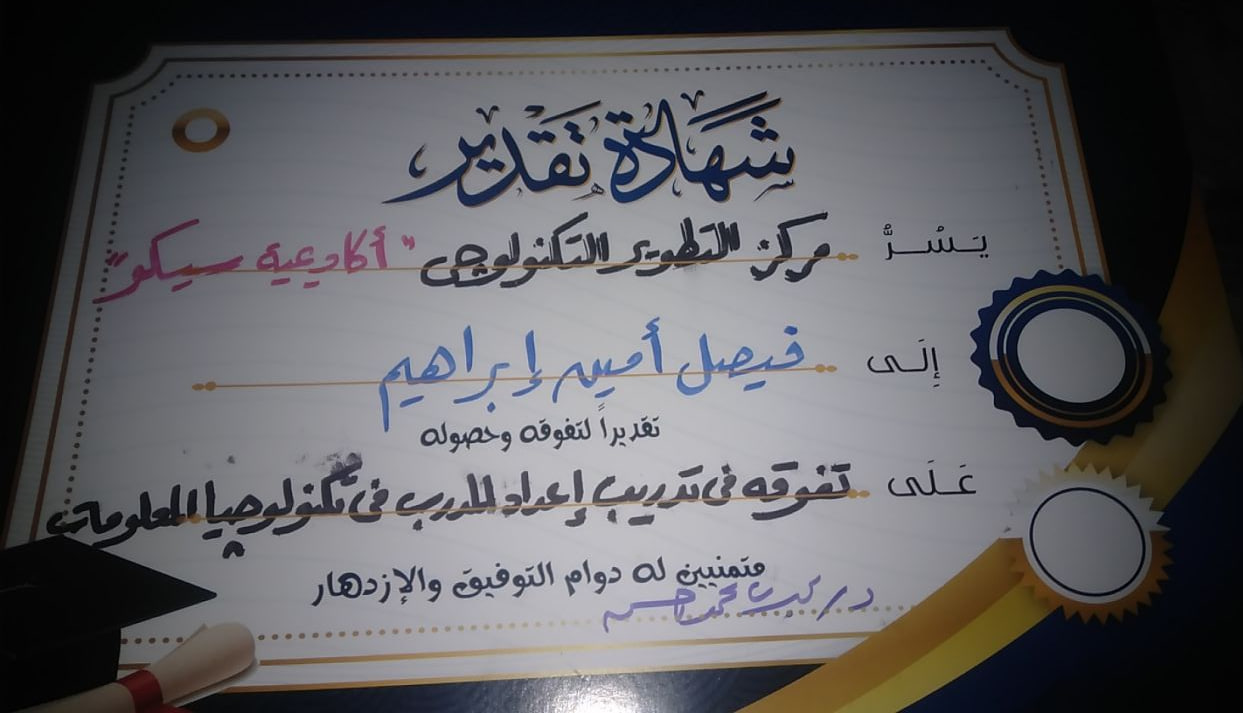 شهادة تقدير
يَسُرُّ مركز التطوير التكنولوجى "أكاديمية سيكو"
إِلَى فيصل أمين إبراهيم
تقديراً لتفوقه وحصوله
عَلَى تفوقه فى تدريب إعداد المدرب فى تكنولوجيا المعلومات
متمنيين له دوام التوفيق والإزدهار
محمد حسن